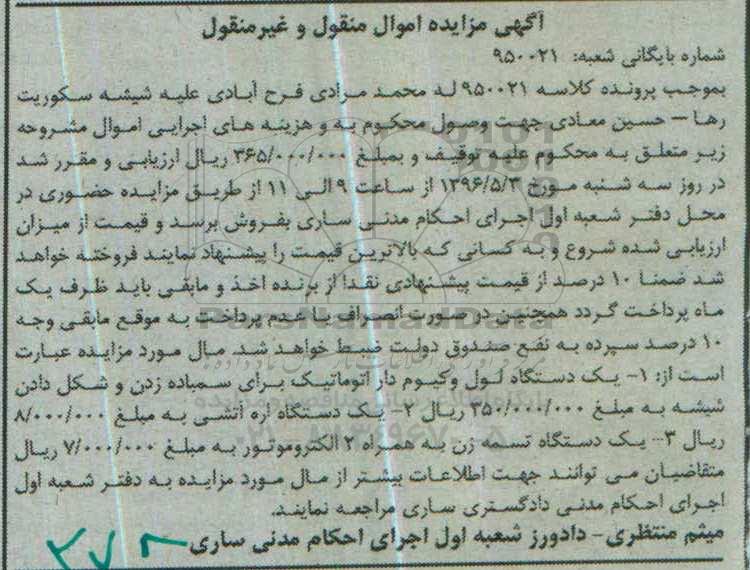 آگهی مزایده اموال منقول و غیرمنقول
شماره بایگانی شعبه: ۹۵۰۰۲۱
بموجب پرونده کلاسه ۹۵۰۰۲۱ له محمد مرادی فرح آبادی علیه شیشه سکوریت
رها – حسین معادی جهت وصول محکوم به و هزینه های اجرایی اموال مشروحه
زیر متعلق به محکوم علیه توقیف و بمبلغ ۳۶۵/۰۰۰/۰۰۰ ریال ارزیابی و مقرر شد
در روز سه شنبه مورخ ۱۳۹۶/۵/۳ از ساعت ۹ الی ۱۱ از طریق مزایده حضوری در
محل دفتر شعبه اول اجرای احکام مدنی ساری بفروش برسد و قیمت از میزان
ارزیابی شده شروع و به کسانی که بالاترین قیمت را پیشنهاد نمایند فروخته خواهد
شد ضمنا ۱۰ درصد از قیمت پیشنهادی نقدا از برنده اخذ و مابقی باید ظرف یک
ماه پرداخت گردد همچنین در صورت انصراف یا عدم پرداخت به موقع مابقی وجه
۱۰ درصد سپرده به نفع صندوق دولت ضبط خواهد شد. مال مورد مزایده عبارت
است از: ۱- یک دستگاه لول وکیوم دار اتوماتیک برای سمباده زدن و شکل دادن
شیشه به مبلغ ۳۵۰/۰۰۰/۰۰۰ ریال ۲- یک دستگاه اره آتشی به مبلغ ۸/۰۰۰/۰۰۰
ریال ۳- یک دستگاه تسمه زن به همراه ۲ الکتروموتور به مبلغ ۷/۰۰۰/۰۰۰ ریال
متقاضیان می توانند جهت اطلاعات بیشتر از مال مورد مزایده به دفتر شعبه اول
اجرای احکام مدنی دادگستری ساری مراجعه نمایند.
میثم منتظری- دادورز شعبه اول اجرای احکام مدنی ساری
ParsNamadData